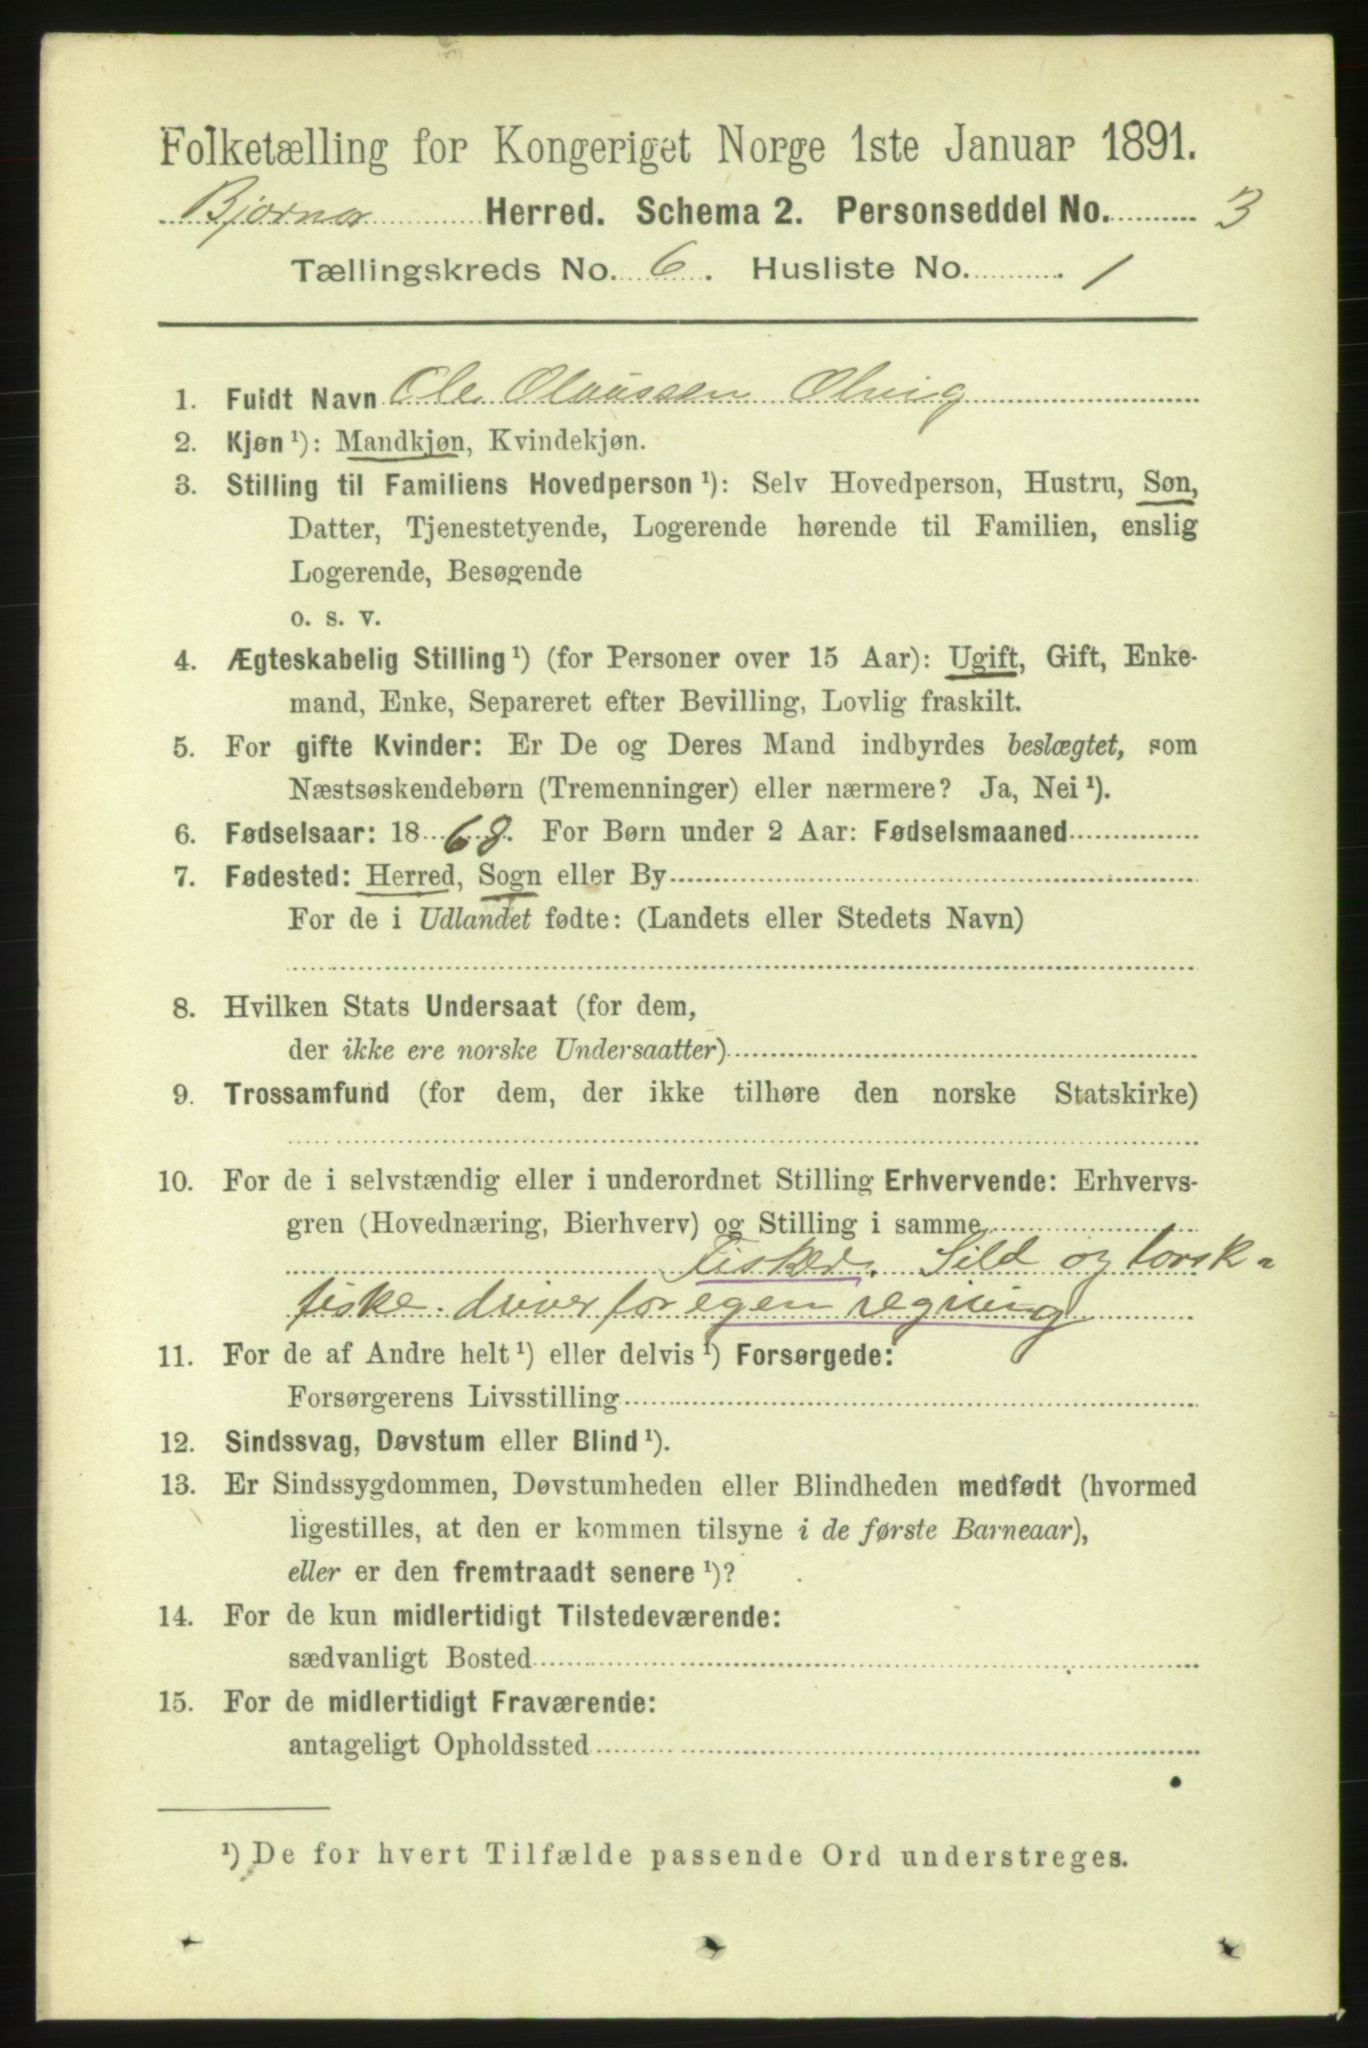 Folketælling for Kongeriget Norge 1ste Januar 1891.
Bjørnør Herred. Schema 2. Personseddel No. 3
Tællingskreds No. 6. Husliste No. 1
1. Fuldt Navn Ole Olaussen
2. Kjøn ¹): Mandkjøn, Kvindekjøn.
3. Stilling til Familiens Hovedperson ¹): Selv Hovedperson, Hustru, Søn,
Datter, Tjenestetyende, Logerende hørende til Familien, enslig
Logerende, Besøgende
o. s. v.
4. Ægteskabelig Stilling ¹) (for Personer over 15 Aar): Ugift, Gift, Enke-
mand, Enke, Separeret efter Bevilling, Lovlig fraskilt.
5. For gifte Kvinder: Er De og Deres Mand indbyrdes beslægtet, som
Næstsøskendebørn (Tremenninger) eller nærmere? Ja, Nei ¹).
6. Fødselsaar: 1868. For Børn under 2 Aar: Fødselsmaaned
7. Fødested: Herred, Sogn eller By
For de i Udlandet fødte: (Landets eller Stedets Navn)
8. Hvilken Stats Undersaat (for dem,
der ikke ere norske Undersaatter)
9. Trossamfund (for dem, der ikke tilhøre den norske Statskirke)
10. For de i selvstændig eller i underordnet Stilling Erhvervende: Erhvervs-
gren (Hovednæring, Bierhverv) og Stilling i samme
Fisker. Sild og torsk-
fiske. driver for egen regning
11. For de af Andre helt ¹) eller delvis ¹) Forsørgede:
Forsørgerens Livsstilling
12. Sindssvag, Døvstum eller Blind ¹).
13. Er Sindssygdommen, Døvstumheden eller Blindheden medfødt (hvormed
ligestilles, at den er kommen tilsyne i de første Barneaar),
eller er den fremtraadt senere ¹)?
14. For de kun midlertidigt Tilstedeværende:
sædvanligt Bosted
15. For de midlertidigt Fraværende:
antageligt Opholdssted
¹) De for hvert Tilfælde passende Ord understreges.